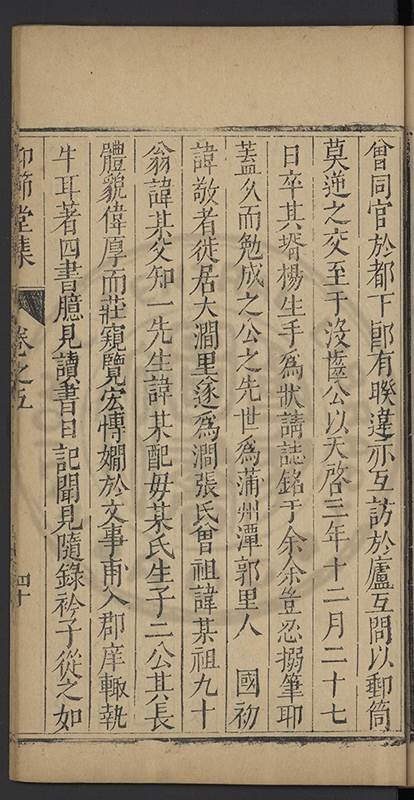 曾同官於都下卽有睽違亦互訪於廬互問以郵筒
莫逆之交至于沒齒公以天啓三年十二月二十七
日卒其壻楊生手爲狀請誌銘于余余豈忍搦筆耶
蓋久而勉成之公之先世爲蒲州潭郭里人　國初
諱敬者徙居大澗里遂爲澗張氏曾祖諱某祖九十
翁諱某父知一先生諱某配毋某氏生子二公其長
體貌偉厚而莊窺覽宏博嫺於文事甫入郡庠輙執
牛耳著四書臆見讀書日記聞見隨錄衿子從之如
仰節堂集　卷之五　四十